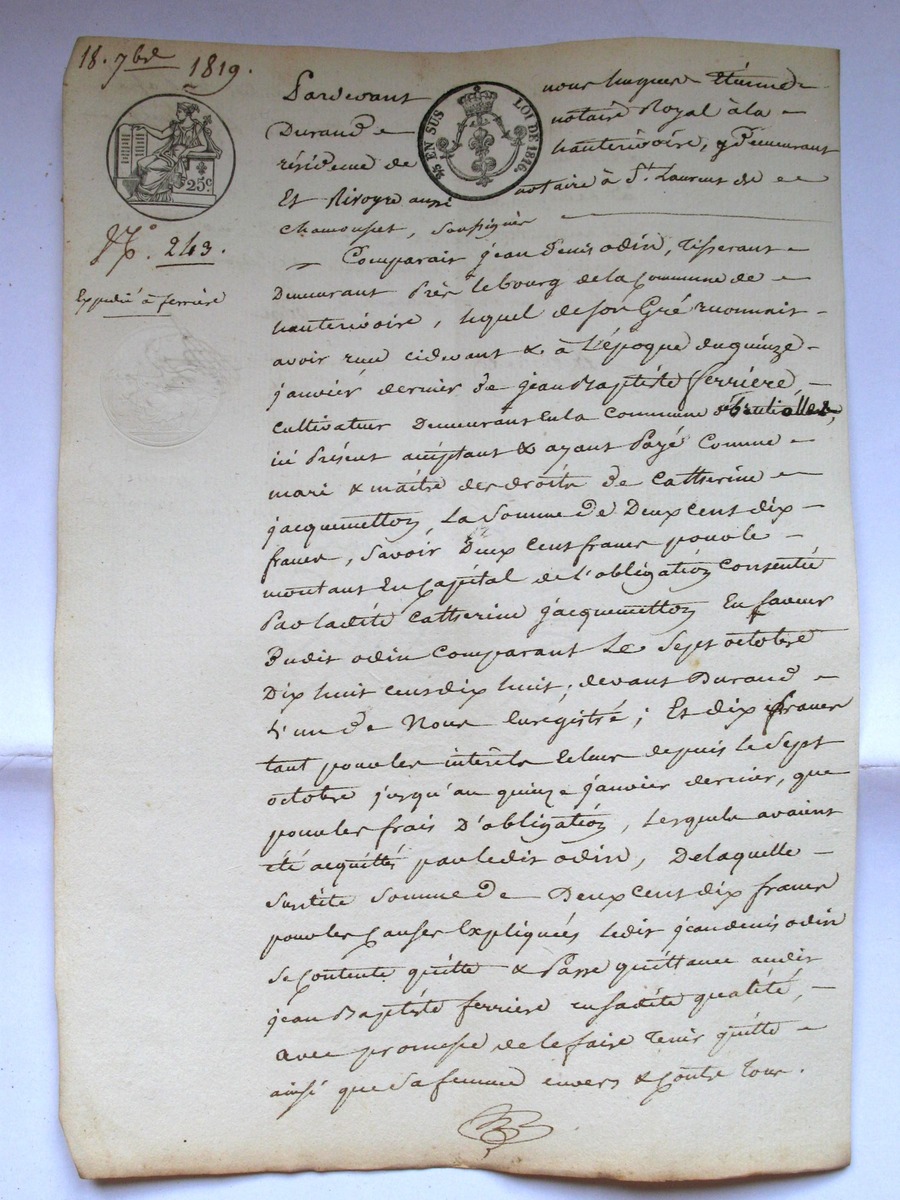 18. 7bre 1819.
25c
25 EN SUS LOI DE 1816.
No. 243.
Expédié à ferrière
Pardevant nous hugues Etienne
Durand notaire Royal à la
résidence de hauterivoire, y Demeurant
Et Rivoyre aussi notaire à St Laurent de
Chamousset, soussignés
Comparait jean Denis odin, tisserant
Demeurant Près le bourg de la Commune de
hauterivoire, lequel de son Gré reconnait
avoir reçu cidevant & à L'époque du quinze
janvier dernier de jean Baptiste ferriere,
cultivateur Demeurant En la Commune de brulliolles,
ici Présent acceptant & ayant Payé Comme
mari & maitre des droits de Catherine
jacquemetton, La Somme De Deux Cent dix
francs, Savoir Deux Cent francs pour le
montant En Capital de L'obligation Consentie
Par ladite Catherine jacquemetton En faveur
Dudit odin Comparant Le Sept octobre
Dix huit cent dix huit, devant Durand
L'un de Nous Enregistré; Et dix francs
tant pour les intérêts Echus depuis le Sept
octobre jusqu'au quinze janvier dernier, que
pour les frais D'obligation, Lesquels avaient
été acquittés par ledit odin, De laquelle
Susdite Somme De Deux Cent dix francs
pour les Causes Expliquées Ledit jean denis odin
Se Contente quitte & Passe quittance audit
jean Baptiste ferriere en sadite qualité,
avec promesse de le faire Tenir quitte
ainsi que Sa femme envers & Contre Tous.